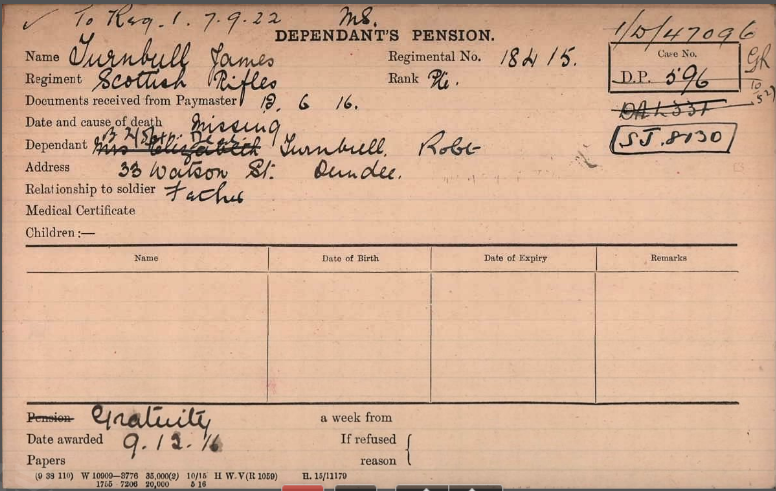 ✓ To Reg. 1. 7.9.22 MS.
DEPENDANT'S PENSION.
1/D/47096
Name Turnbull James Regimental No. 18415.
Regiment Scottish Rifles Rank Pte.
Case No.
D.P. 596
Documents received from Paymaster 13. 6 16.
Date and cause of death Missing
SJ.8130
Dependant Mrs Elizabeth Turnbull. Robt
Address 33 Watson St. Dundee.
Relationship to soldier Father
Medical Certificate
Children :—
Name Date of Birth Date of Expiry Remarks
Pension Gratuity a week from
Date awarded 9.12.16 If refused
Papers reason
(9 38 110) W 10909—3776 35,000(2) 10/15 H W.V(R 1059) H. 15/11179
1755 7206 20,000 5 16